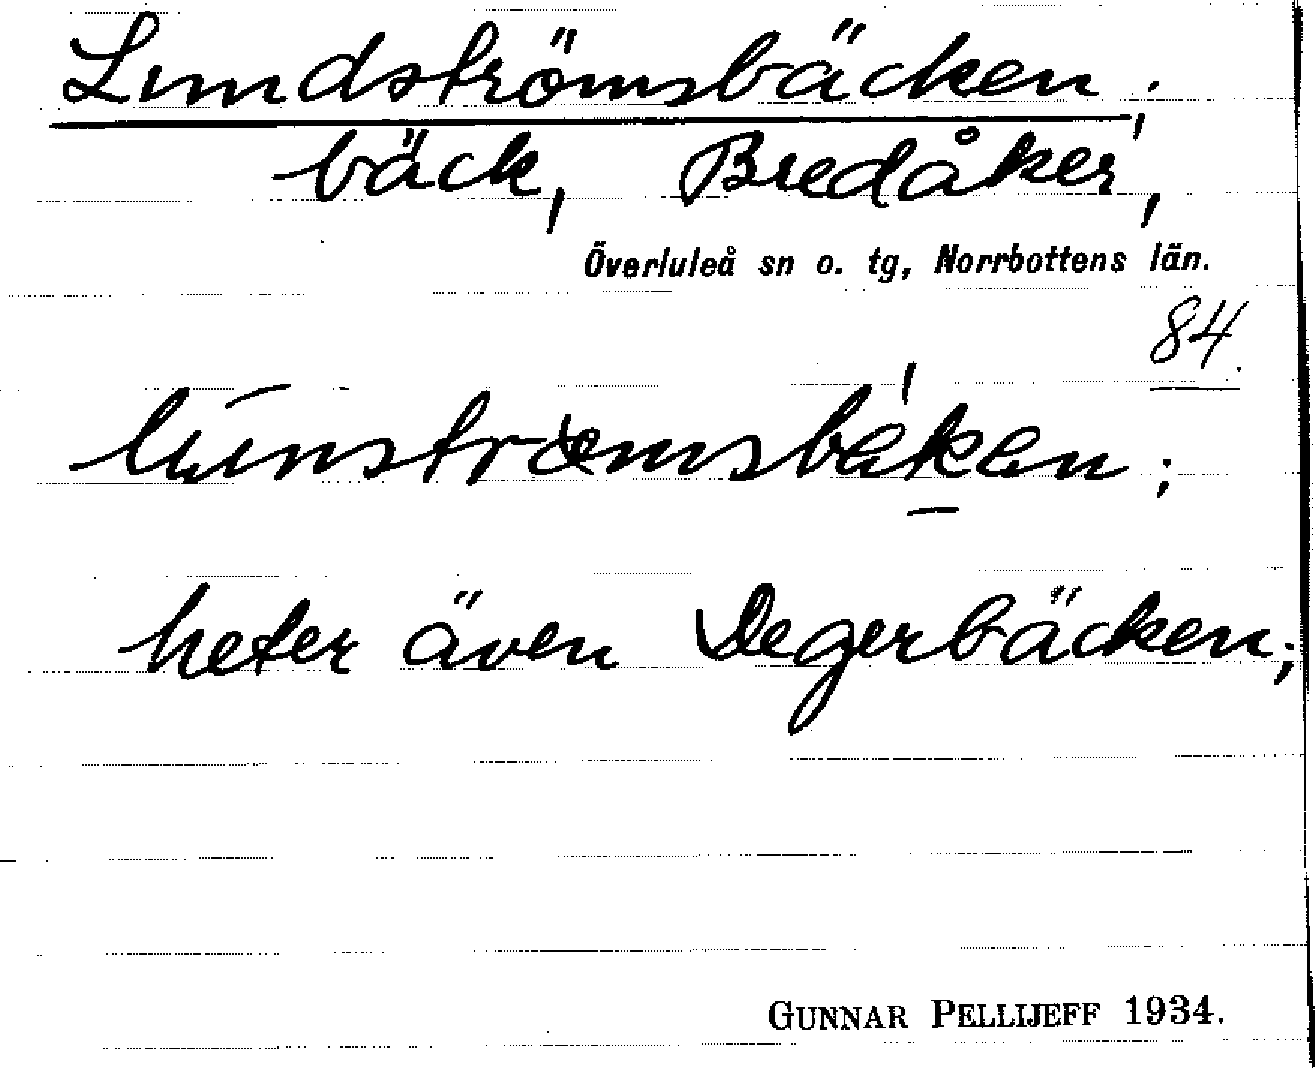 Lundströmsbäcken;
bäck, Bredåker,
Överluleå sn o. tg, Norrbottens län.
84.
heter även Degerbäcken;
GUNNAR PELLIJEFF 1934.